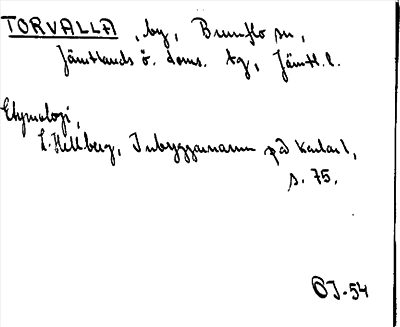 TORVALLA, by, Brunflo sn,
Jämtlands ö. doms. tg, Jämtl. l.
Etymologi,
L. Hellberg, Inbyggarnamn på karlar I,
s. 75.
OJ-54